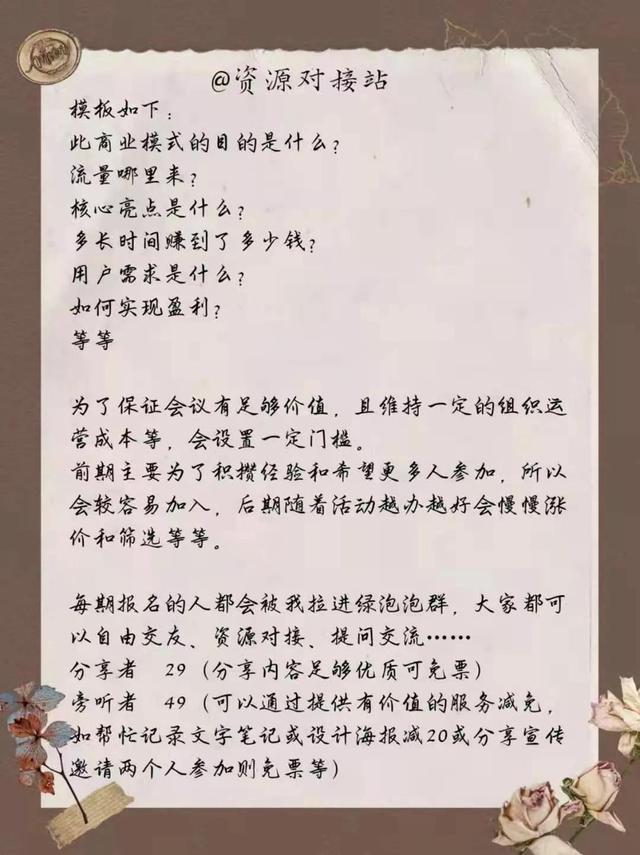 @资源对接站
模板如下：
此商业模式的目的是什么？
流量哪里来？
核心亮点是什么？
多长时间赚到了多少钱？
用户需求是什么？
如何实现盈利？
等等
为了保证会议有足够价值，且维持一定的组织运
营成本等，会设置一定门槛。
前期主要为了积攒经验和希望更多人参加，所以
会较容易加入，后期随着活动越办越好会慢慢涨
价和筛选等等。
每期报名的人都会被我拉进绿泡泡群，大家都可
以自由交友、资源对接、提问交流……
分享者 29（分享内容足够优质可免票）
旁听者 49（可以通过提供有价值的服务减免，
如帮忙记录文字笔记或设计海报减20或分享宣传
邀请两个人参加则免票等）